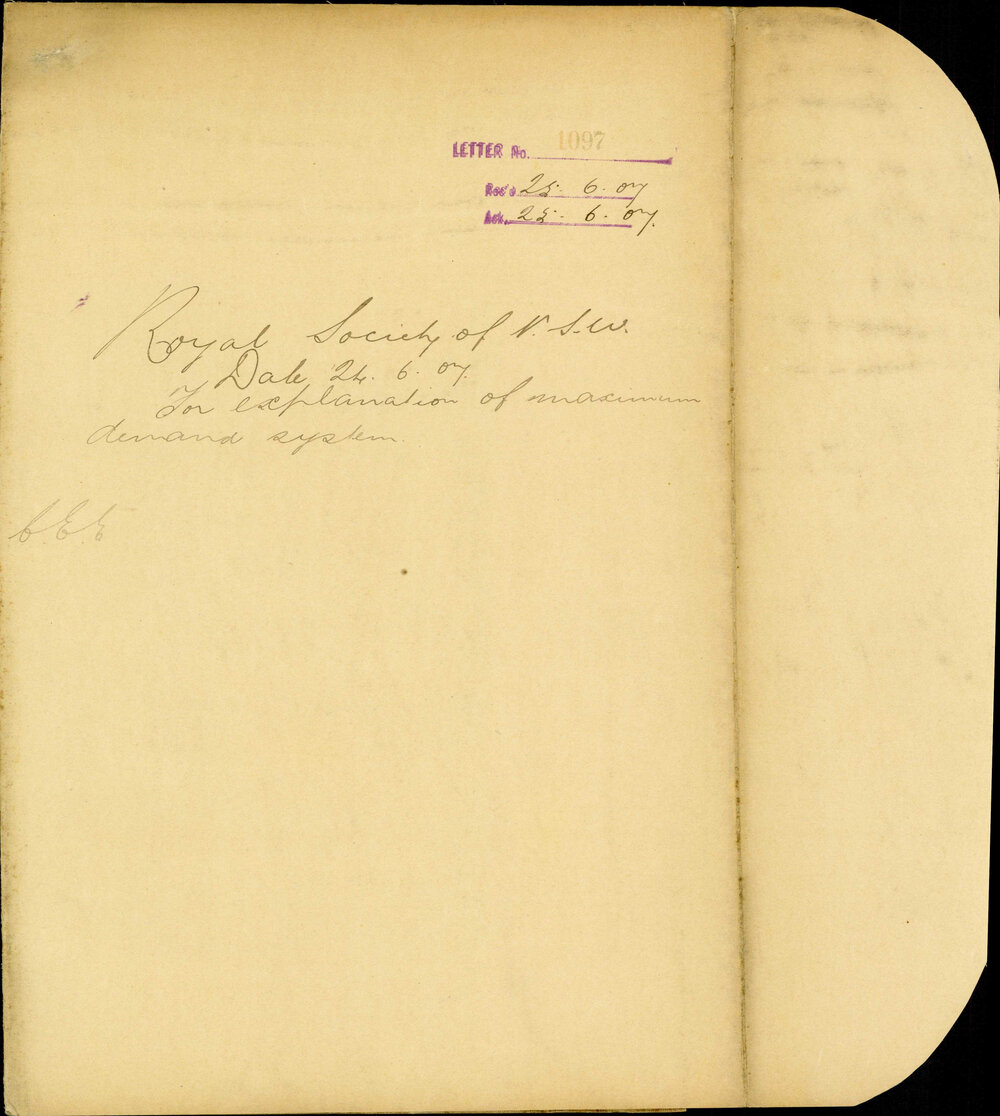 LETTER No. 1097
Rec'd 25. 6. 07
Ack. 25. 6. 07.
Royal Society of N. S. W.
Date 24. 6. 07.
For explanation of maximum
demand system.
C. E. E